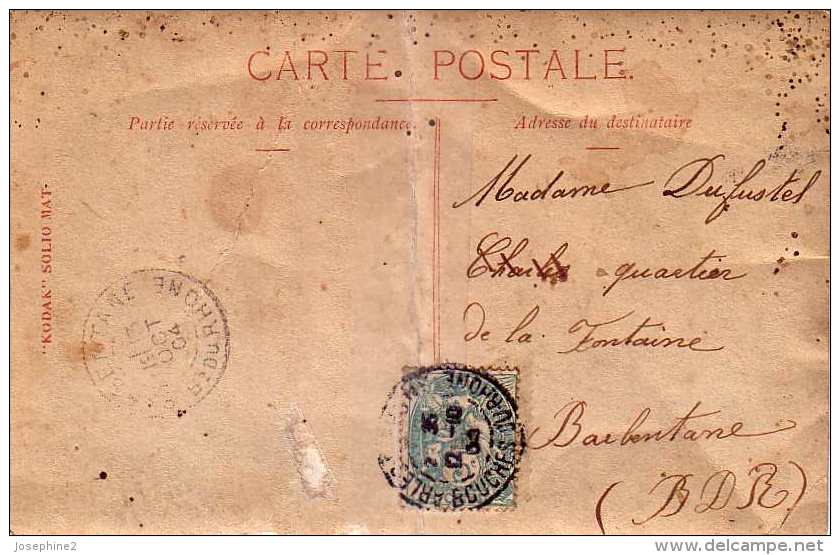 CARTE POSTALE.
Partie réservée à la correspondance.
Adresse du destinataire
"KODAK" SOLIO MAT
Madame Dufustel
Charles quartier
de la Fontaine
Barbentane
(BDR)
BARBENTANE
BOUCHES DU RHONE
OCT
04
ARLES
BOUCHES-DU-RHONE
10
04
josephine2
www.delcampe.net